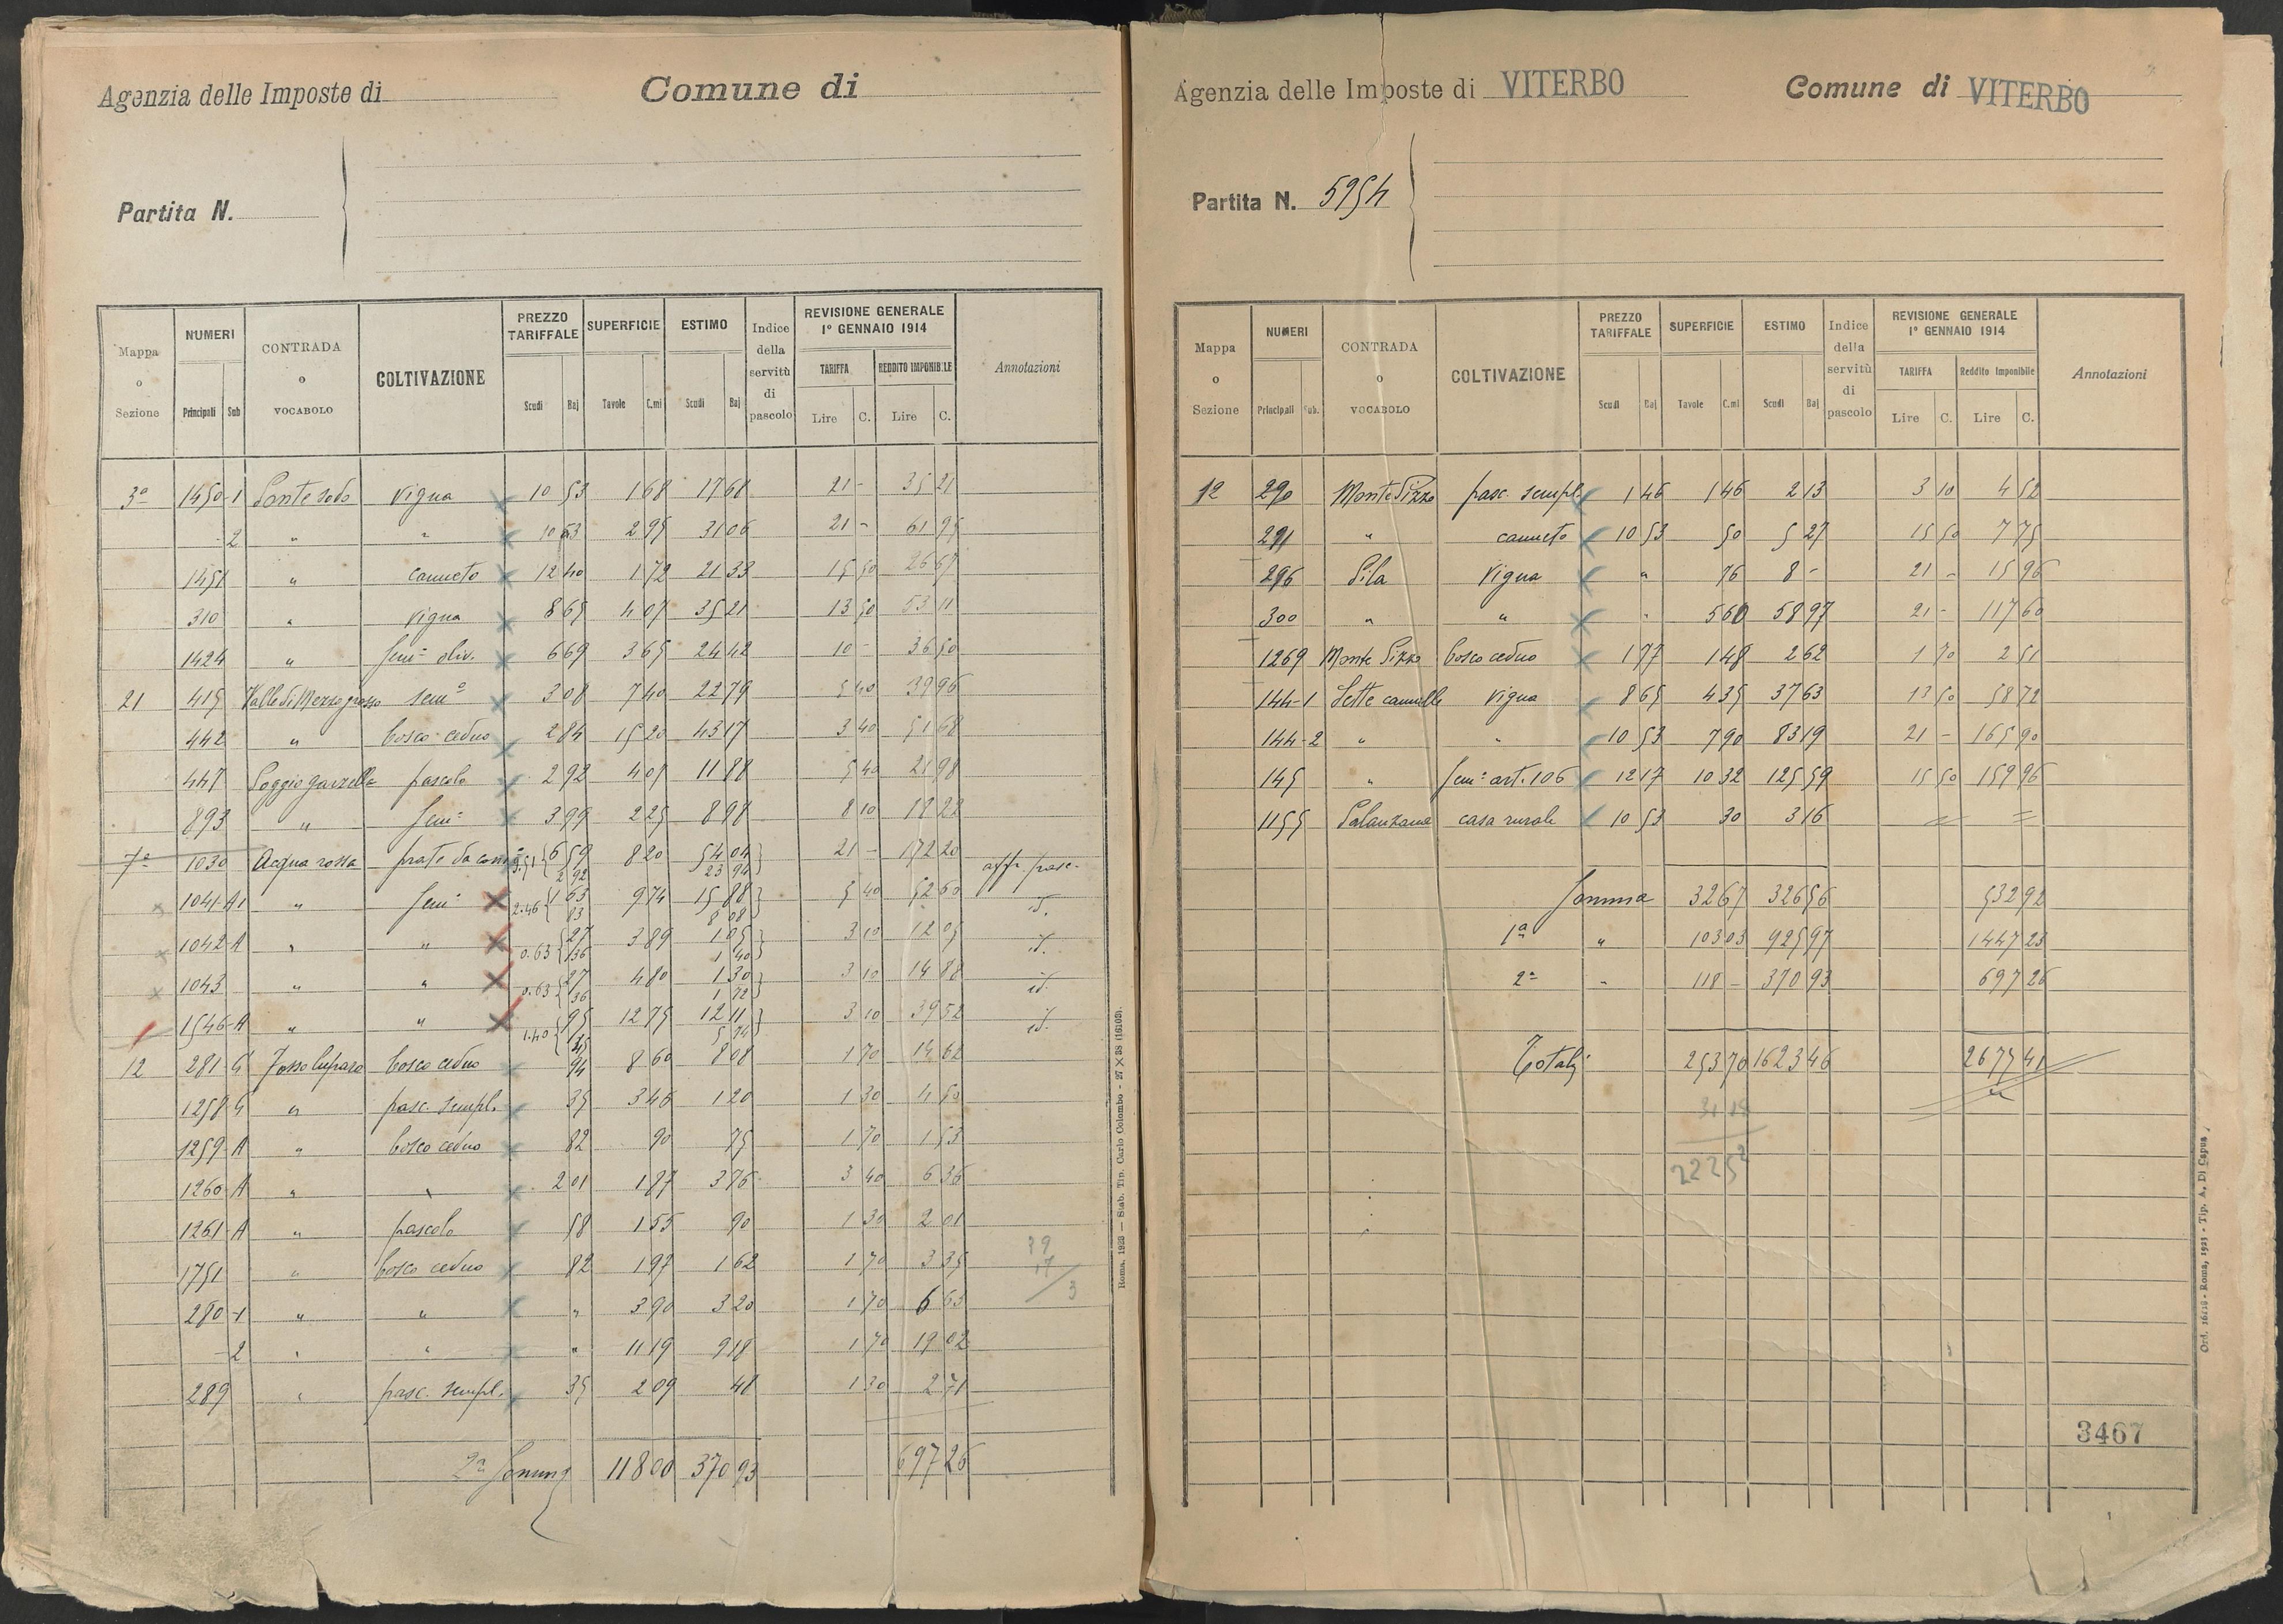 Agenzia delle Imposte di
Comune di
Partita N.
Mappa o Sezione | NUMERI Principali Sub | CONTRADA o VOCABOLO | COLTIVAZIONE | PREZZO TARIFFALE Scudi Baj | SUPERFICIE Tavole C.mi | ESTIMO Scudi Baj | Indice della servitù di pascolo | REVISIONE GENERALE 1º GENNAIO 1914 TARIFFA Lire C. REDDITO IMPONIBILE Lire C. | Annotazioni
3ª 1450 1 Ponte sodo vigna 10 53 1 68 17 68 21 - 35 21
2 " " 10 53 2 95 31 06 21 - 61 95
1451 " canneto 12 40 1 72 21 33 15 50 26 67
310 " vigna 8 65 4 07 35 21 13 50 53 11
1424 " sem.º oliv. 6 69 3 65 24 42 10 - 36 50
21 415 Valle di Mezzogrosso sem.º 3 08 7 40 22 79 5 40 39 96
442 " bosco ceduo 2 84 15 20 43 17 3 40 51 68
447 Poggio gazzella pascolo 2 92 4 07 11 88 5 40 21 98
893 " sem.º 3 99 2 25 8 98 8 10 18 22
7ª 1030 Acqua rossa prato da 6 59 8 20 54 04 21 - 172 20
2 92 23 94
1041 A1 " sem.º 2.46 1 63 9 74 15 88 5 40 52 60 id.
83 8 08
1042 A " " 0.63 27 3 89 1 05 3 10 12 05 id.
36 1 40
1043 " " 0.63 27 4 80 1 30 3 10 14 88 id.
36 1 72
1546 A " " 1.40 95 12 75 12 11 3 10 39 52 id.
45 5 74
12 281 G Fosso luparo bosco ceduo 94 8 60 8 08 1 70 14 62
1258 G " pasc. sempl. 35 3 46 1 20 1 30 4 50
1259 A " bosco ceduo 82 90 75 1 70 1 53
1260 A " " 2 01 1 87 3 76 3 40 6 36
1261 A " pascolo 58 1 55 90 1 30 2 01
1751 " bosco ceduo 82 1 97 1 62 1 70 3 35
280 1 " " " 3 90 3 20 1 70 6 63
2 " " " 11 19 9 18 1 70 19 02
289 " pasc. sempl. 35 2 09 48 1 30 2 71
2ª Somma 118 00 370 93 697 26
Roma, 1923 — Stab. Tip. Carlo Colombo - 27 X 38 (16103).
Agenzia delle Imposte di VITERBO
Comune di VITERBO
Partita N. 5954
Mappa o Sezione | NUMERI Principali Sub. | CONTRADA o VOCABOLO | COLTIVAZIONE | PREZZO TARIFFALE Scudi Baj | SUPERFICIE Tavole C.mi | ESTIMO Scudi Baj | Indice della servitù di pascolo | REVISIONE GENERALE 1º GENNAIO 1914 TARIFFA Lire C. Reddito Imponibile Lire C. | Annotazioni
12 290 Monte Pizzo pasc. sempl. 1 46 1 46 2 13 3 10 4 52
291 " canneto 10 53 50 5 27 15 50 7 75
296 Pila vigna " 76 8 - 21 - 15 96
300 " " " 5 60 58 97 21 - 117 60
1269 Monte Pizzo bosco ceduo 1 77 1 48 2 62 1 70 2 51
144 1 Sette cannelle vigna 8 65 4 35 37 63 13 50 58 72
144 2 " " 10 53 7 90 83 19 21 - 165 90
145 " sem.º art. 106 12 17 10 32 125 59 15 50 159 96
1155 Palanzana casa rurale 10 53 30 3 16 = =
Somma 32 67 326 56 532 92
1ª " 103 03 925 97 1447 23
2ª " 118 - 370 93 697 26
Totali 253 70 1623 46 2677 41
31 18
222 52
3467
Ord. 16418 - Roma, 1923 - Tip. A. Di Capua